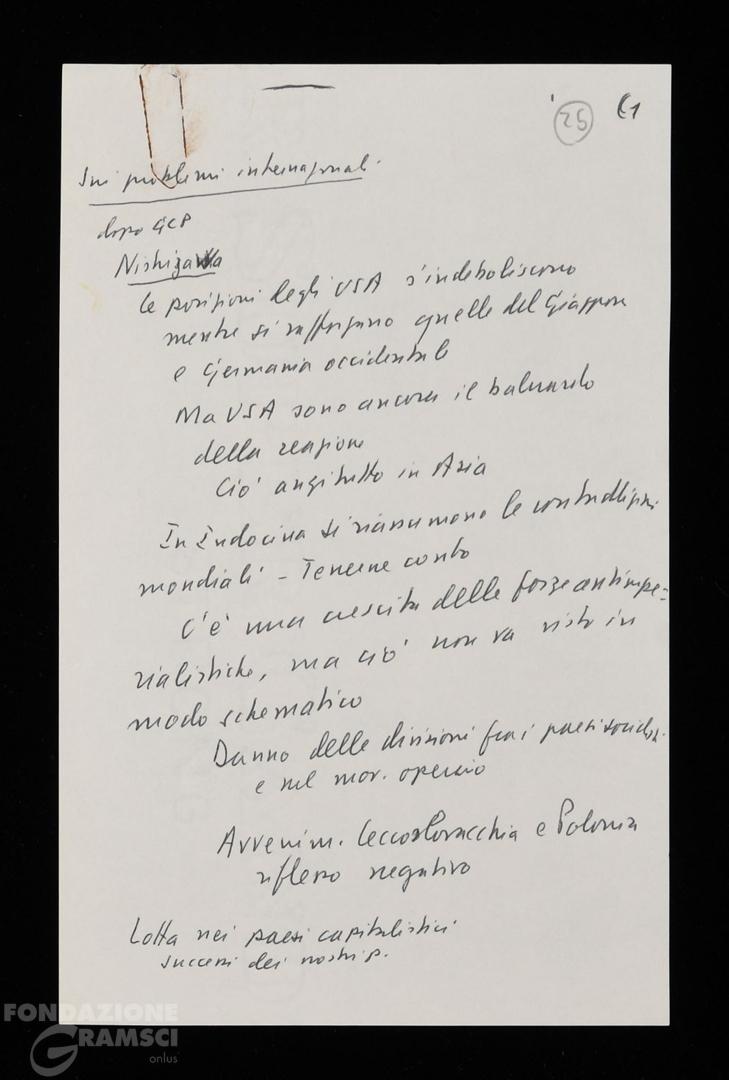 25
Sui problemi internazionali
dopo GCP
Nishizawa
Le posizioni degli USA s'indeboliscono
mentre si rafforzano quelle del Giappone
e Germania occidentale
Ma USA sono ancora il baluardo
della reazione
Ciò anzitutto in Asia
In Indocina si riassumono le contraddizioni
mondiali - Tenerne conto
C'è una crescita delle forze antimpe=
rialistiche, ma ciò non va visto in
modo schematico
Danno delle divisioni fra i paesi socialisti
e nel mov. operaio
Avvenim. Cecoslovacchia e Polonia
riflesso negativo
Lotta nei paesi capitalistici
successi dei nostri p.
FONDAZIONE
GRAMSCI
onlus